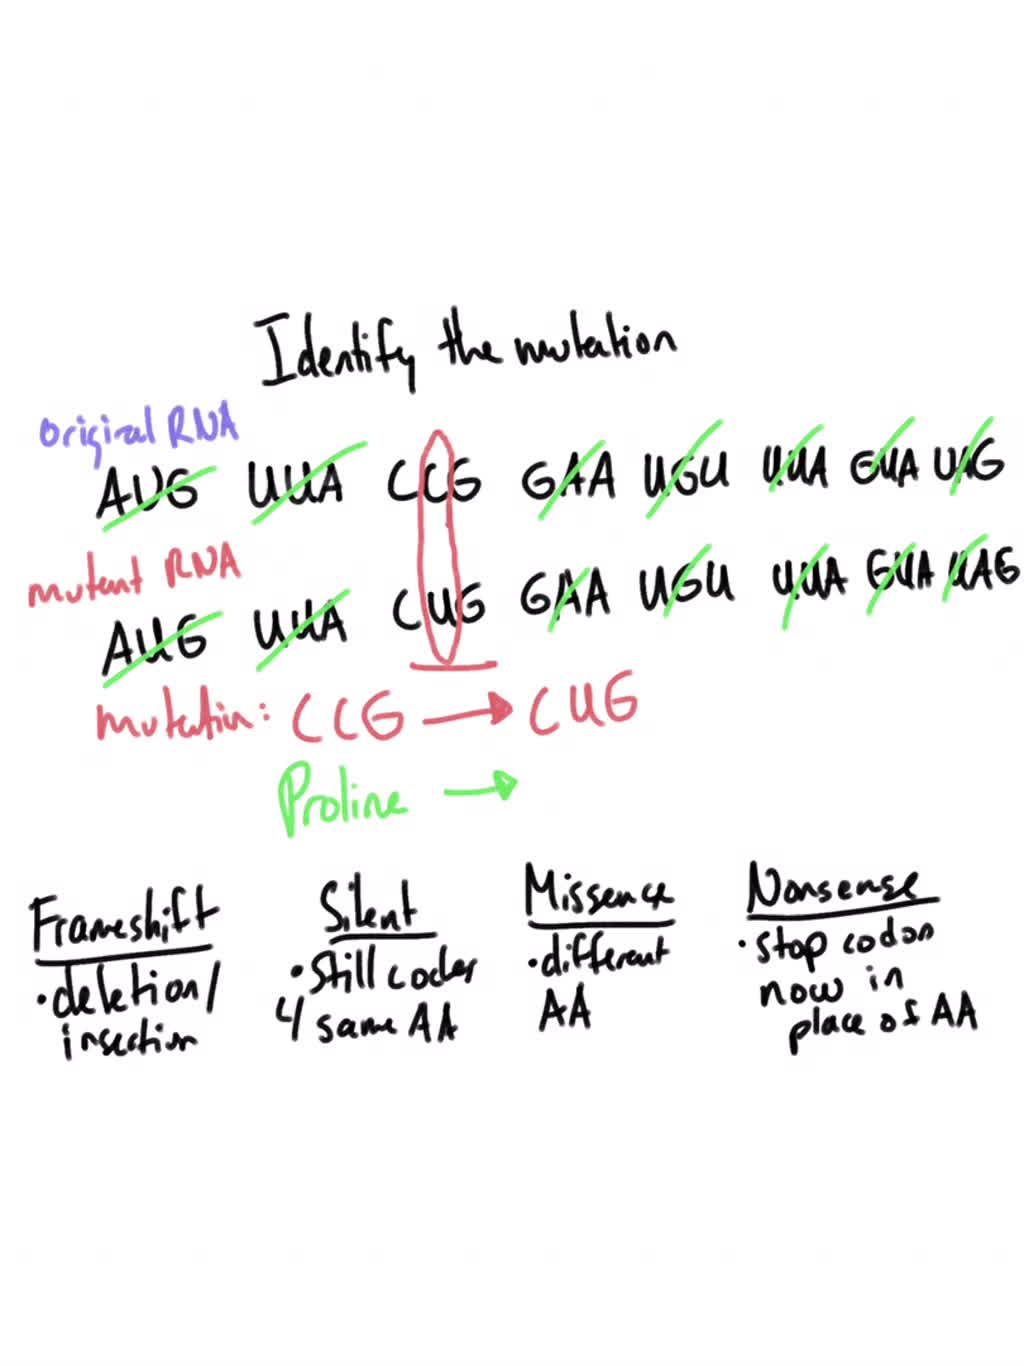 Identify the mutation
original RNA
AUG UUA CCG GAA UGU UUA GUA UAG
mutant RNA
AUG UUA CUG GAA UGU UUA GUA UAG
mutation: CCG → CUG
Proline →
Frameshift
• deletion/
insection
Silent
• Still codes
4 same AA
Missence
• different
AA
Nonsense
• stop codon
now in
place of AA